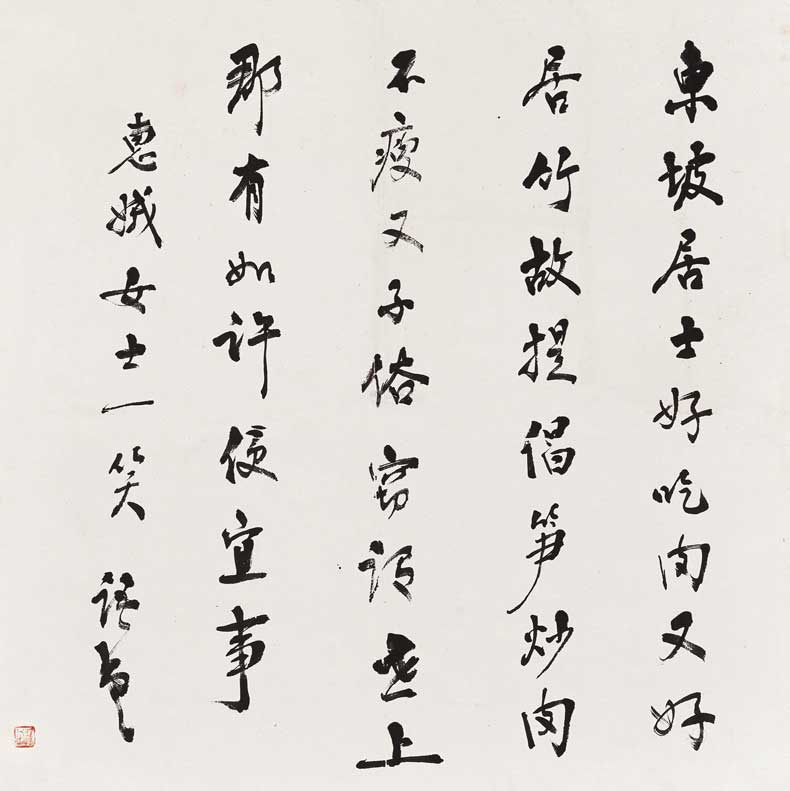 東坡居士好吃肉又好
居竹故提倡笋炒肉
不瘦又不俗窃謂世上
那有如許便宜事
惠娥女士一笑